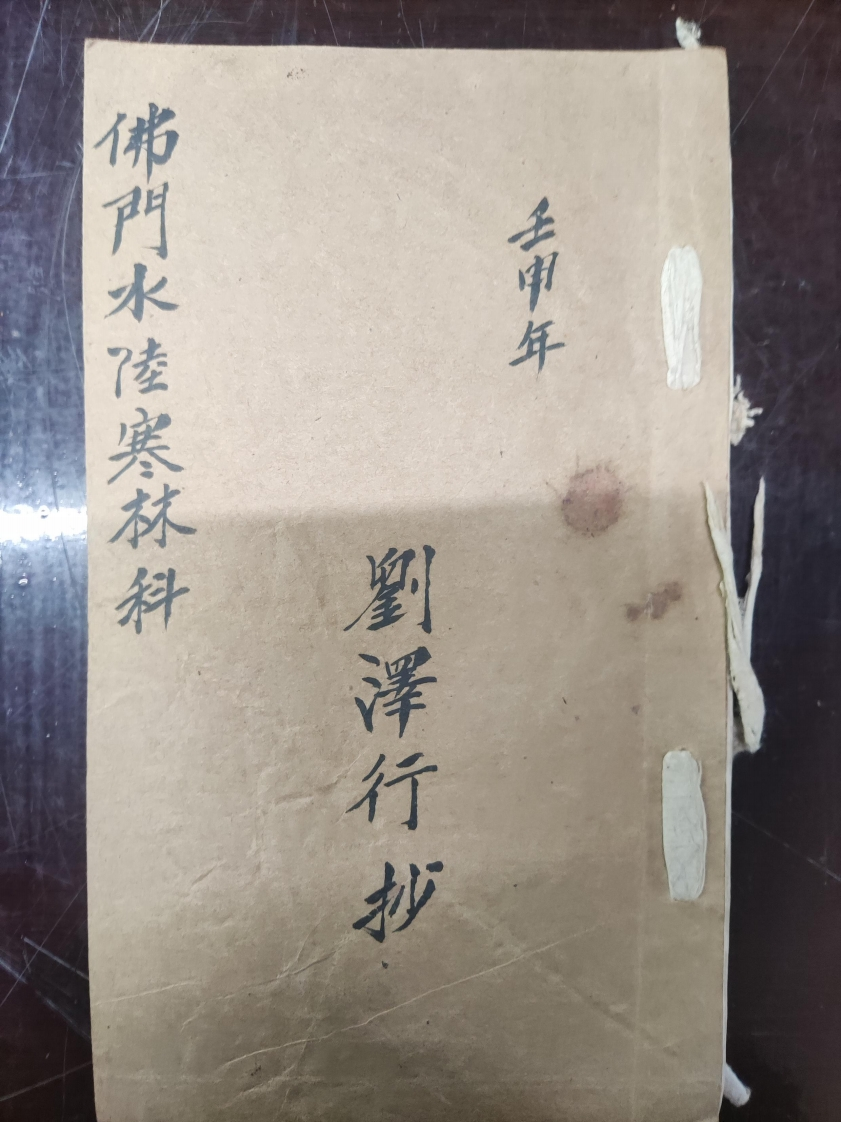 壬申年
劉澤行抄
佛門水陸寒林科